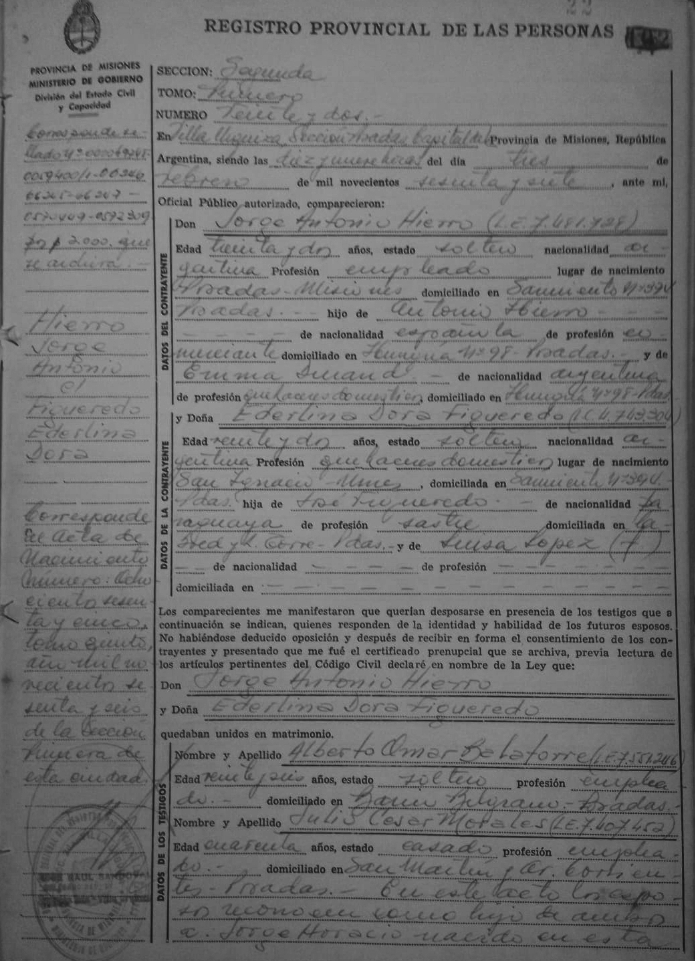 REGISTRO PROVINCIAL DE LAS PERSONAS
PROVINCIA DE MISIONES
MINISTERIO DE GOBIERNO
División del Estado Civil
y Capacidad
Corresponde se-
y seis
de la Sección
Primera de
esta ciudad.
Hierro
Jorge
Antonio
c/
Figueredo
Ederlina
Dora
Corresponde
Acta de
Nacimiento
número:
ciento sesen-
ta y cinco,
tomo quinto,
año mil no-
vecientos se-
senta y seis
SECCION: Segunda
TOMO: Primero
NUMERO Veinte y dos.-
En Villa Urquiza Sección Posadas Capital de la Provincia de Misiones, República
Argentina, siendo las diez y nueve horas del día tres de
febrero de mil novecientos sesenta y siete, ante mi,
Oficial Público autorizado, comparecieron:
DATOS DEL CONTRAYENTE
Don Jorge Antonio Hierro (L.E. 7.481.728)
Edad treinta y dos años, estado soltero nacionalidad ar-
gentina Profesión empleado lugar de nacimiento
Posadas-Misiones domiciliado en Sarmiento Nº 394
Posadas.- hijo de Antonio Hierro
de nacionalidad española de profesión co-
merciante domiciliado en Hungría Nº 98-Posadas.- y de
Emma Durand.- de nacionalidad argentina
de profesión quehaceres domésticos, domiciliado en Hungría Nº 98-Pdas.
DATOS DE LA CONTRAYENTE
y Doña Ederlina Dora Figueredo
Edad veinte y dos años, estado soltera nacionalidad ar-
gentina Profesión quehaceres domésticos lugar de nacimiento
San Ignacio Mnes, domiciliada en Sarmiento Nº 394
Pdas. hija de José Figueredo.- de nacionalidad Pa-
raguaya de profesión sastre domiciliada en
Pdas.- y de Luisa Lopez (f)
de nacionalidad de profesión
domiciliada en
Los comparecientes me manifestaron que querían desposarse en presencia de los testigos que a
continuación se indican, quienes responden de la identidad y habilidad de los futuros esposos.
No habiéndose deducido oposición y después de recibir en forma el consentimiento de los con-
trayentes y presentado que me fué el certificado prenupcial que se archiva, previa lectura de
los artículos pertinentes del Código Civil declaró en nombre de la Ley que:
Don Jorge Antonio Hierro
y Doña Ederlina Dora Figueredo
quedaban unidos en matrimonio.
DATOS DE LOS TESTIGOS
Nombre y Apellido Alberto Omar
Edad veinte y seis años, estado soltero profesión emplea-
do.- domiciliado en Barrio Belgrano-Posadas.-
Nombre y Apellido Julio Cesar Morales (L.E. 7.407.452)
Edad cuarenta años, estado casado profesión emplea-
do.- domiciliado en San Martín y Av. Corrien-
tes-Posadas.- En este acto los espo-
sos reconocen como hijo de ambos
a: Jorge Horacio nacido en esta